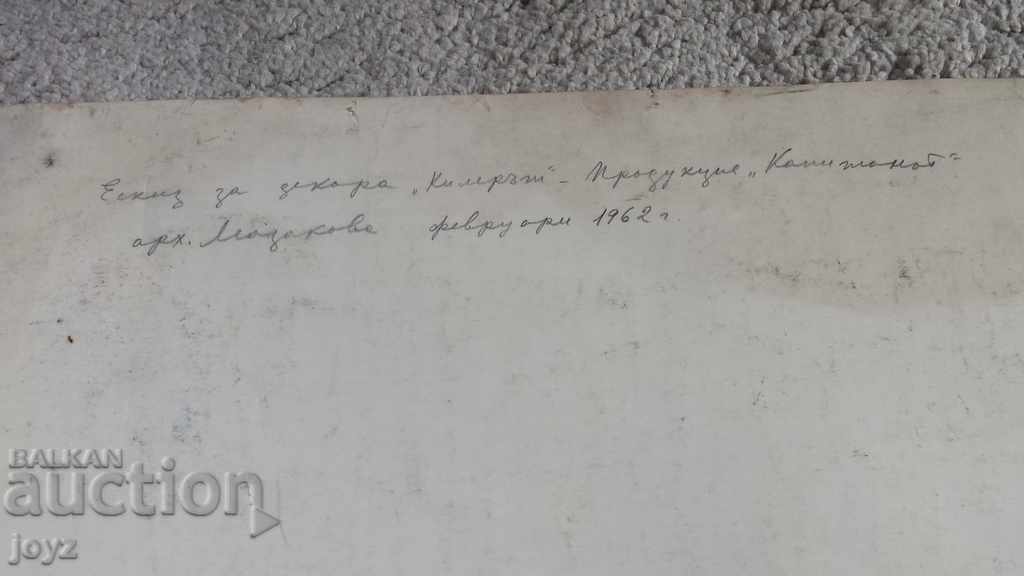 Ескиз за декора „Килерът" - Продукция „Капитанът"
арх. Мозакова февруари 1962 г.
BALKAN
auction
joyz